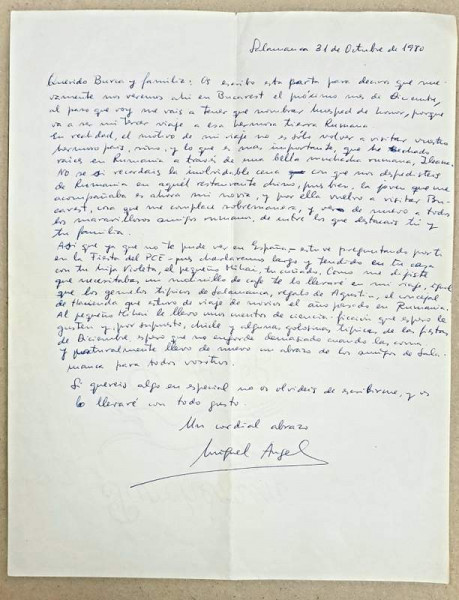 Salamanca 31 de Octubre de 1980
Querido Burca y familia: Os escribo esta carta para deciros que nue-
vamente nos veremos ahí en Bucarest el próximo mes de Diciembre,
al paso que voy me vais a tener que nombrar huésped de honor, porque
va a ser mi tercer viaje a esa hermosa tierra Rumana
En realidad, el motivo de mi viaje no es sólo volver a visitar vuestro
hermoso país, sino, y lo que es más importante, que he echado
raíces en Rumania a través de una bella muchacha rumana, Ileana.
NO se si recordais la inolvidable cena con que nos despedisteis
de Rumania en aquel restaurante chino, pues bien, la joven que me
acompañaba es ahora mi novia, y por ella vuelvo a visitar Bu-
carest, cosa que me complace sobremanera, y ver de nuevo a todos
los maravillosos amigos rumanos, de entre los que destacais tú y
tu familia.
Así que ya que no te pude ver en España, estuve preguntando por ti
en la Fiesta del PCE - pues charlaremos largo y tendido en tu casa
con tu hija Violeta, el pequeño Mihai, tu cuñado. Como me dijiste
que necesitabas un molinillo de café te lo llevaré en mi viaje, igual
que los gemelos típicos de Salamanca, regalo de Agustín, el concejal
de Hacienda que estuvo de viaje de novios el año pasado en Rumania.
Al pequeño Mihai le llevo unos cuentos de ciencia-ficción que espero le
gusten y, por supuesto, chicle y algunas golosinas típicas de las fiestas
de Diciembre espero que no enferme demasiado cuando las coma.
y naturalmente llevo de nuevo un abrazo de los amigos de Sala-
manca para todos vosotros.
Si quereis algo en especial no os olvideis de escribirme, y os
lo llevaré con todo gusto.
Un cordial abrazo
Miguel Angel